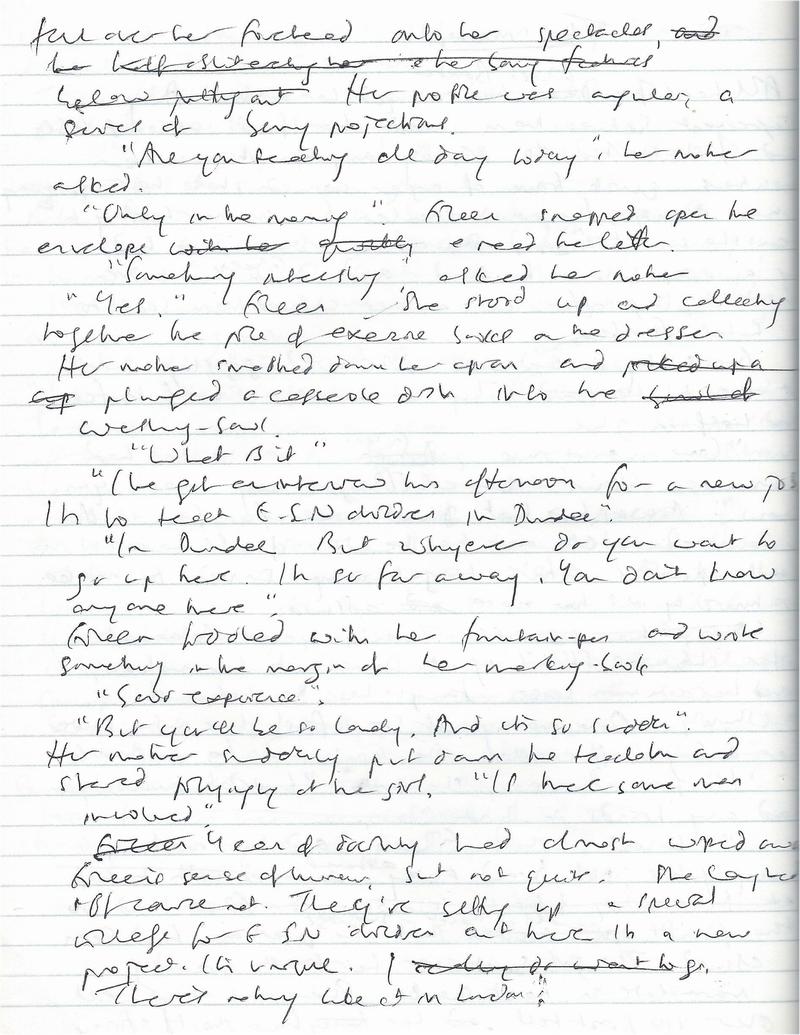 fell over her forehead onto her spectacles, and
her half obliterating her & her bony features
below jutting out Her profile was angular, a
series of bony projections.
"Are you teaching all day today", her mother
asked.
"Only in the morning". Eileen snapped open the
envelope with her quickly & read the letter.
"Something interesting", asked her mother
"Yes." Eileen She stood up and collecting
together the pile of exercise books on the dresser
Her mother smoothed down her apron and picked up a
cup plunged a casserole dish into the bowl of
washing-bowl.
"What is it"
"I've got an interview this afternoon for a new job
It's to teach E-SN children in Dundee".
"In Dundee But whyever do you want to
go up there. It's so far away. You don't know
anyone there".
Eileen fiddled with her fountain-pen and wrote
something in the margin of her marking-book
"Good experience".
"But you'll be so lonely. And it's so sudden".
Her mother suddenly put down the teacloth and
stared at the girl. "Is there some man
involved".
Eileen Years of had almost wiped away
Eileen's sense of humour, but not quite. She laughed
"Of course not. They're setting up a special
village for E SN children out there It's a new
project. It's unique. I really do want to go.
There's nothing like it in London".